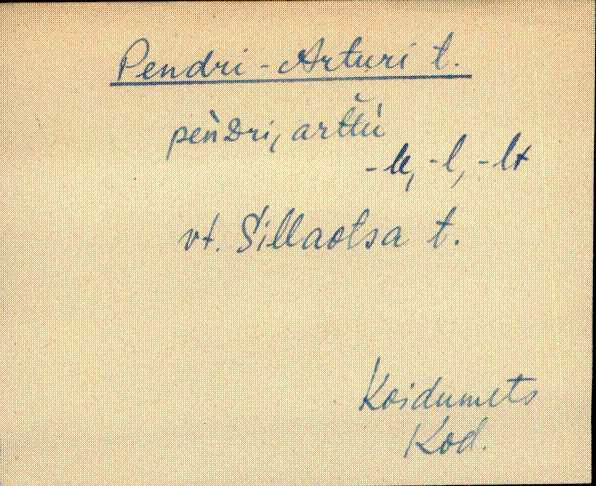 Pendri-Arturi t.
pèǹdri, arttù
-le, -l, -lt
vt. Sillaotsa t.
Koidumets
Kod.